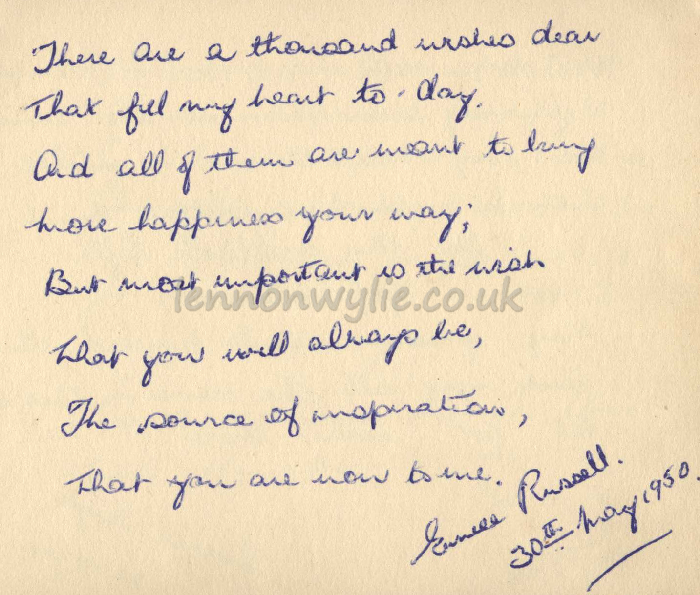 There are a thousand wishes dear
That fill my heart to-day.
And all of them are meant to bring
more happiness your way;
But most important is the wish
lennonwylie.co.uk
That you will always be,
The source of inspiration,
That you are now to me.
Russell.
30th May 1950.